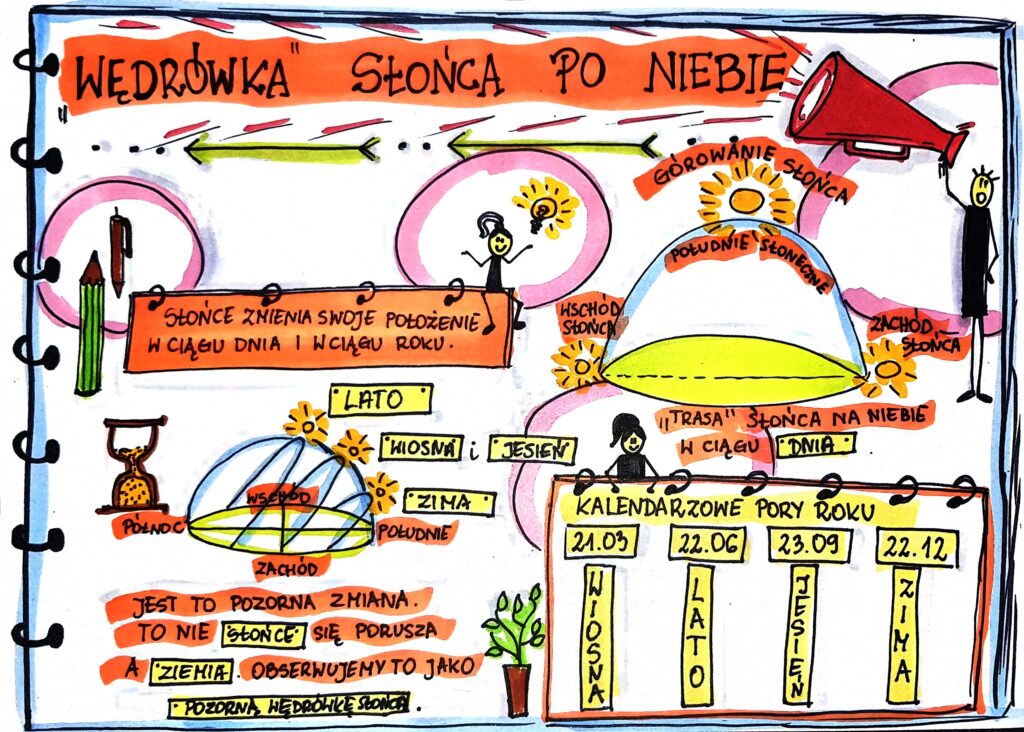 „WĘDRÓWKA" SŁOŃCA PO NIEBIE
GÓROWANIE SŁOŃCA
POŁUDNIE SŁONECZNE
WSCHÓD
SŁOŃCA
ZACHÓD
SŁOŃCA
SŁOŃCE ZMIENIA SWOJE POŁOŻENIE
W CIĄGU DNIA I W CIĄGU ROKU.
„TRASA" SŁOŃCA NA NIEBIE
W CIĄGU DNIA
LATO
WIOSNA i JESIEŃ
ZIMA
WSCHÓD
PÓŁNOC
POŁUDNIE
ZACHÓD
JEST TO POZORNA ZMIANA.
TO NIE SŁOŃCE SIĘ PORUSZA
A ZIEMIA. OBSERWUJEMY TO JAKO
POZORNĄ WĘDRÓWKĘ SŁOŃCA.
KALENDARZOWE PORY ROKU
21.03 22.06 23.09 22.12
WIOSNA LATO JESIEŃ ZIMA